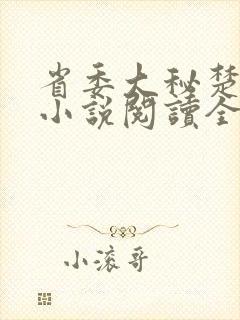 省委大秘楚
小說閱讀全
小滚哥